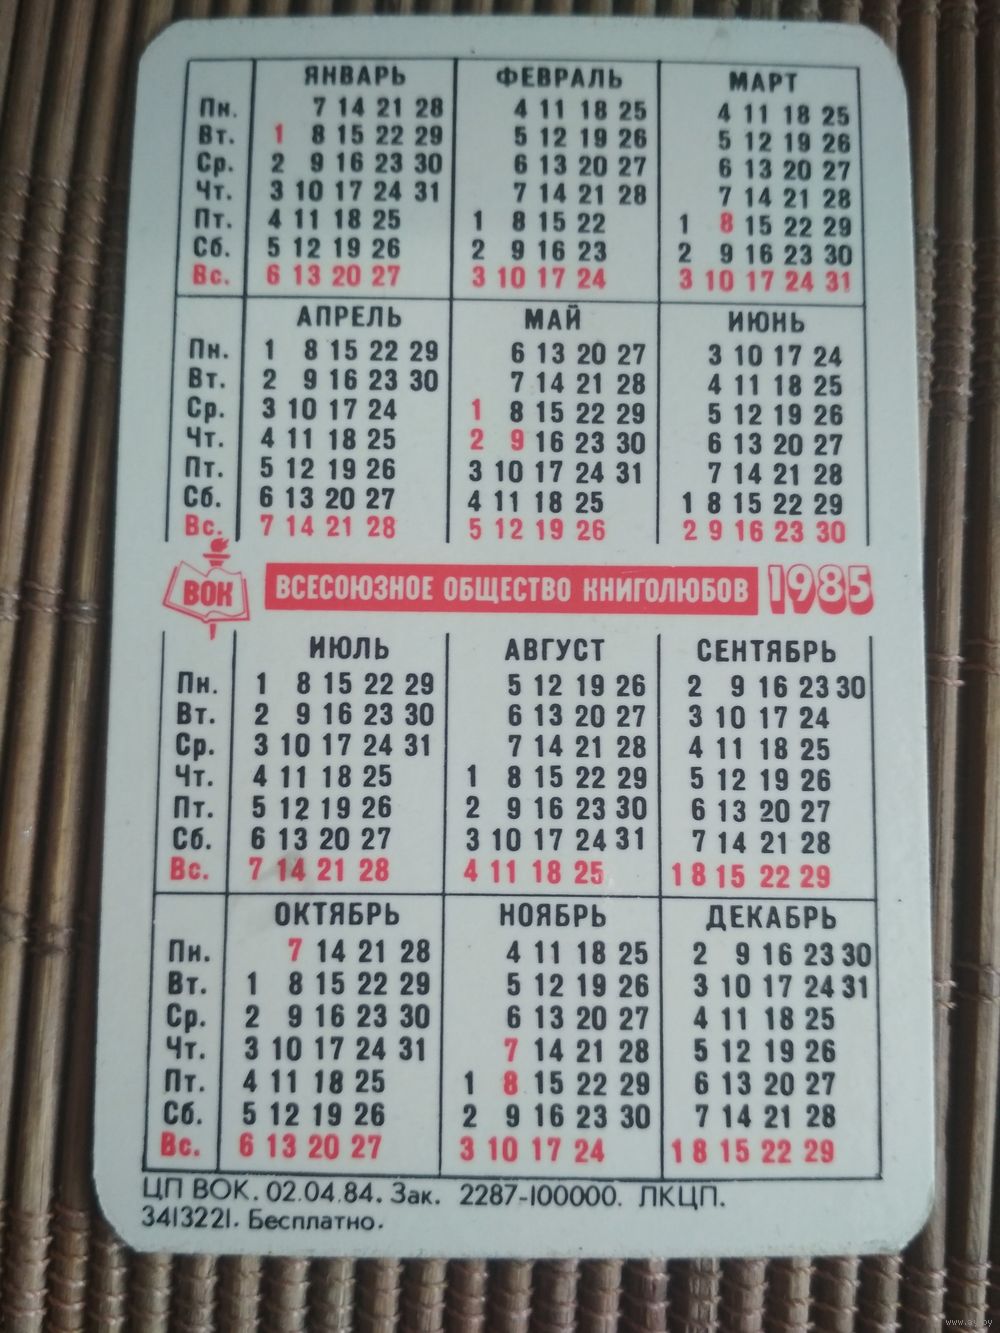 ЯНВАРЬ ФЕВРАЛЬ МАРТ
Пн. 7 14 21 28 4 11 18 25 4 11 18 25
Вт. 1 8 15 22 29 5 12 19 26 5 12 19 26
Ср. 2 9 16 23 30 6 13 20 27 6 13 20 27
Чт. 3 10 17 24 31 7 14 21 28 7 14 21 28
Пт. 4 11 18 25 1 8 15 22 1 8 15 22 29
Сб. 5 12 19 26 2 9 16 23 2 9 16 23 30
Вс. 6 13 20 27 3 10 17 24 3 10 17 24 31
АПРЕЛЬ МАЙ ИЮНЬ
Пн. 1 8 15 22 29 6 13 20 27 3 10 17 24
Вт. 2 9 16 23 30 7 14 21 28 4 11 18 25
Ср. 3 10 17 24 1 8 15 22 29 5 12 19 26
Чт. 4 11 18 25 2 9 16 23 30 6 13 20 27
Пт. 5 12 19 26 3 10 17 24 31 7 14 21 28
Сб. 6 13 20 27 4 11 18 25 1 8 15 22 29
Вс. 7 14 21 28 5 12 19 26 2 9 16 23 30
ВОК ВСЕСОЮЗНОЕ ОБЩЕСТВО КНИГОЛЮБОВ 1985
ИЮЛЬ АВГУСТ СЕНТЯБРЬ
Пн. 1 8 15 22 29 5 12 19 26 2 9 16 23 30
Вт. 2 9 16 23 30 6 13 20 27 3 10 17 24
Ср. 3 10 17 24 31 7 14 21 28 4 11 18 25
Чт. 4 11 18 25 1 8 15 22 29 5 12 19 26
Пт. 5 12 19 26 2 9 16 23 30 6 13 20 27
Сб. 6 13 20 27 3 10 17 24 31 7 14 21 28
Вс. 7 14 21 28 4 11 18 25 1 8 15 22 29
ОКТЯБРЬ НОЯБРЬ ДЕКАБРЬ
Пн. 7 14 21 28 4 11 18 25 2 9 16 23 30
Вт. 1 8 15 22 29 5 12 19 26 3 10 17 24 31
Ср. 2 9 16 23 30 6 13 20 27 4 11 18 25
Чт. 3 10 17 24 31 7 14 21 28 5 12 19 26
Пт. 4 11 18 25 1 8 15 22 29 6 13 20 27
Сб. 5 12 19 26 2 9 16 23 30 7 14 21 28
Вс. 6 13 20 27 3 10 17 24 1 8 15 22 29
ЦП ВОК. 02.04.84. Зак. 2287-100000. ЛКЦП.
3413221. Бесплатно.
www.ay.by